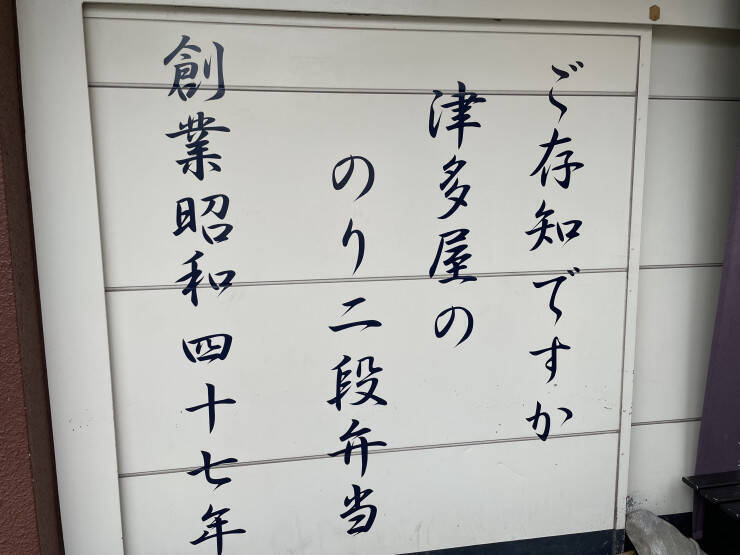 ご存知ですか
津多屋の
のり二段弁当
創業昭和四十七年